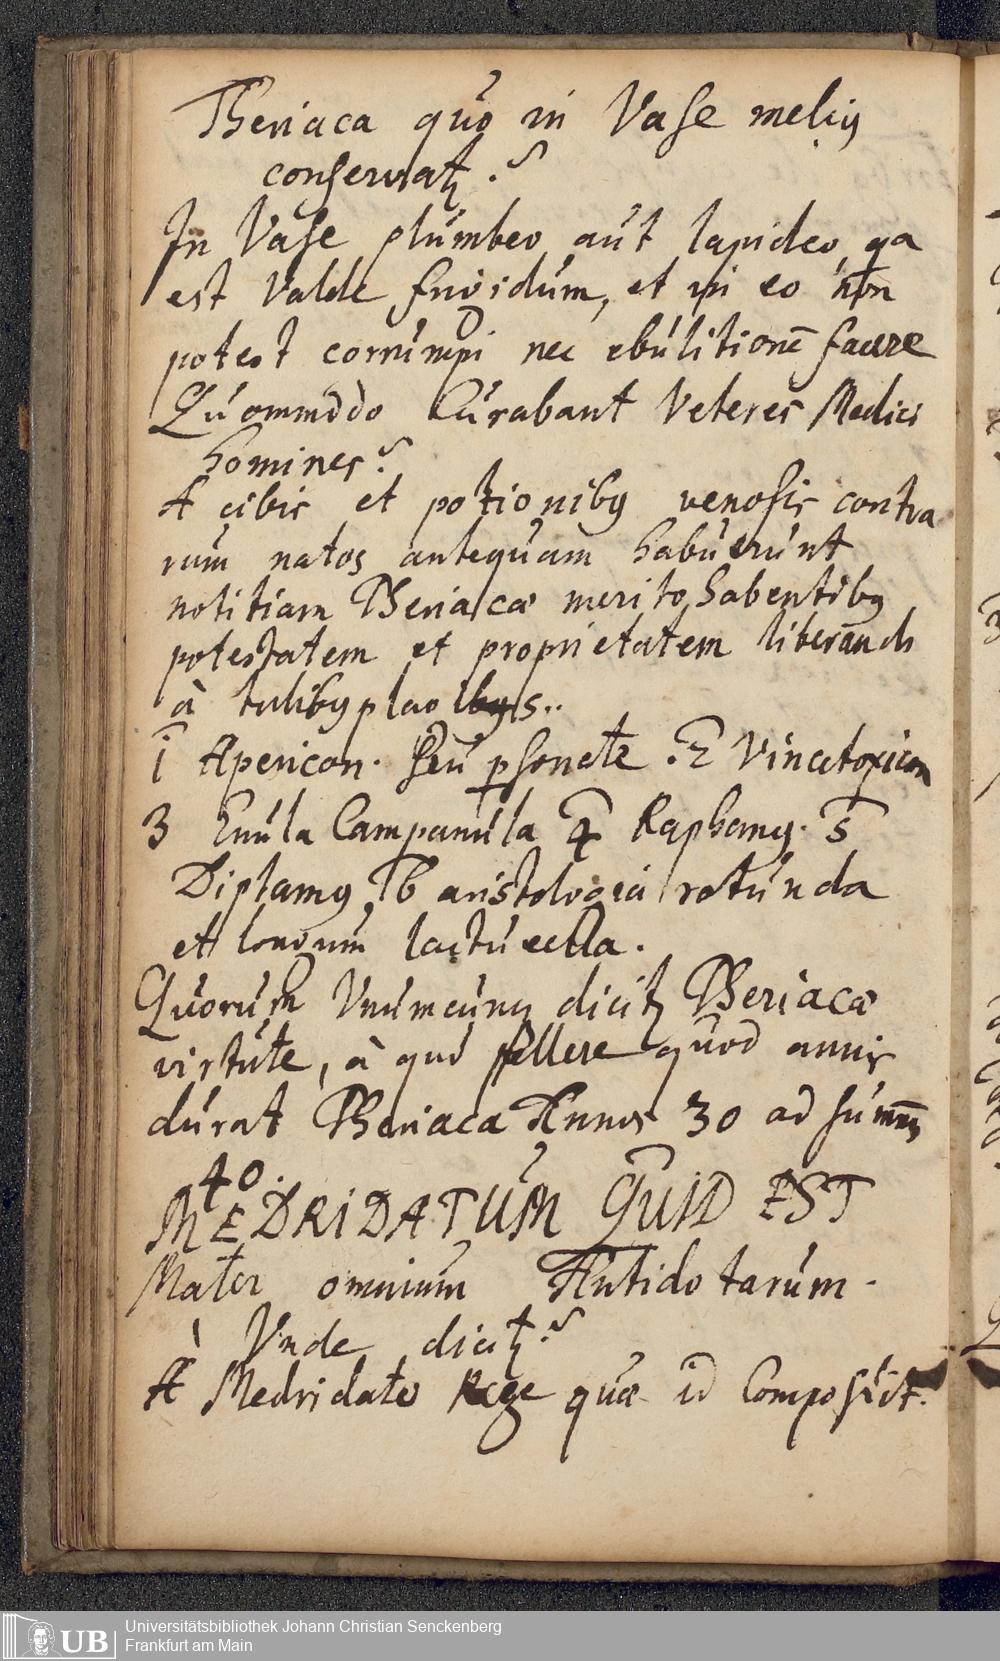 Theriaca quo in Vase meliꝰ
conservatꝫ.?
In Vase plumbeo aut lapideo, qa
est Valde frigidum, et in eo non
potest corrumpi nec ebulitionē facere
Quommodo Curabant Veteres Medici
homines?
A cibis et potionibꝰ venosis contra
rum natos antequam habuerunt
notitiam Theriacæ merito habentibꝰ
potestatem et proprietatem liberandi
à talibꝰ
1 Apericon. seu psonate. 2 Vincetoxicon
3 Enula Campanula 4 Raphanꝰ. 5
Diptamꝰ 6 aristologia rotunda
et lactucella.
Quorum Vnumcunq dicitꝫ Theriacæ
virtute, à quo pellere quod annis
durat Theriaca Annos 30 ad summū
40.
MEDRIDATUM QUID EST
Mater omnium Antidotarum.
À Vnde dicitꝫ.?
A Medridato Rege qua id Composuit.
Universitätsbibliothek Johann Christian Senckenberg
UB Frankfurt am Main